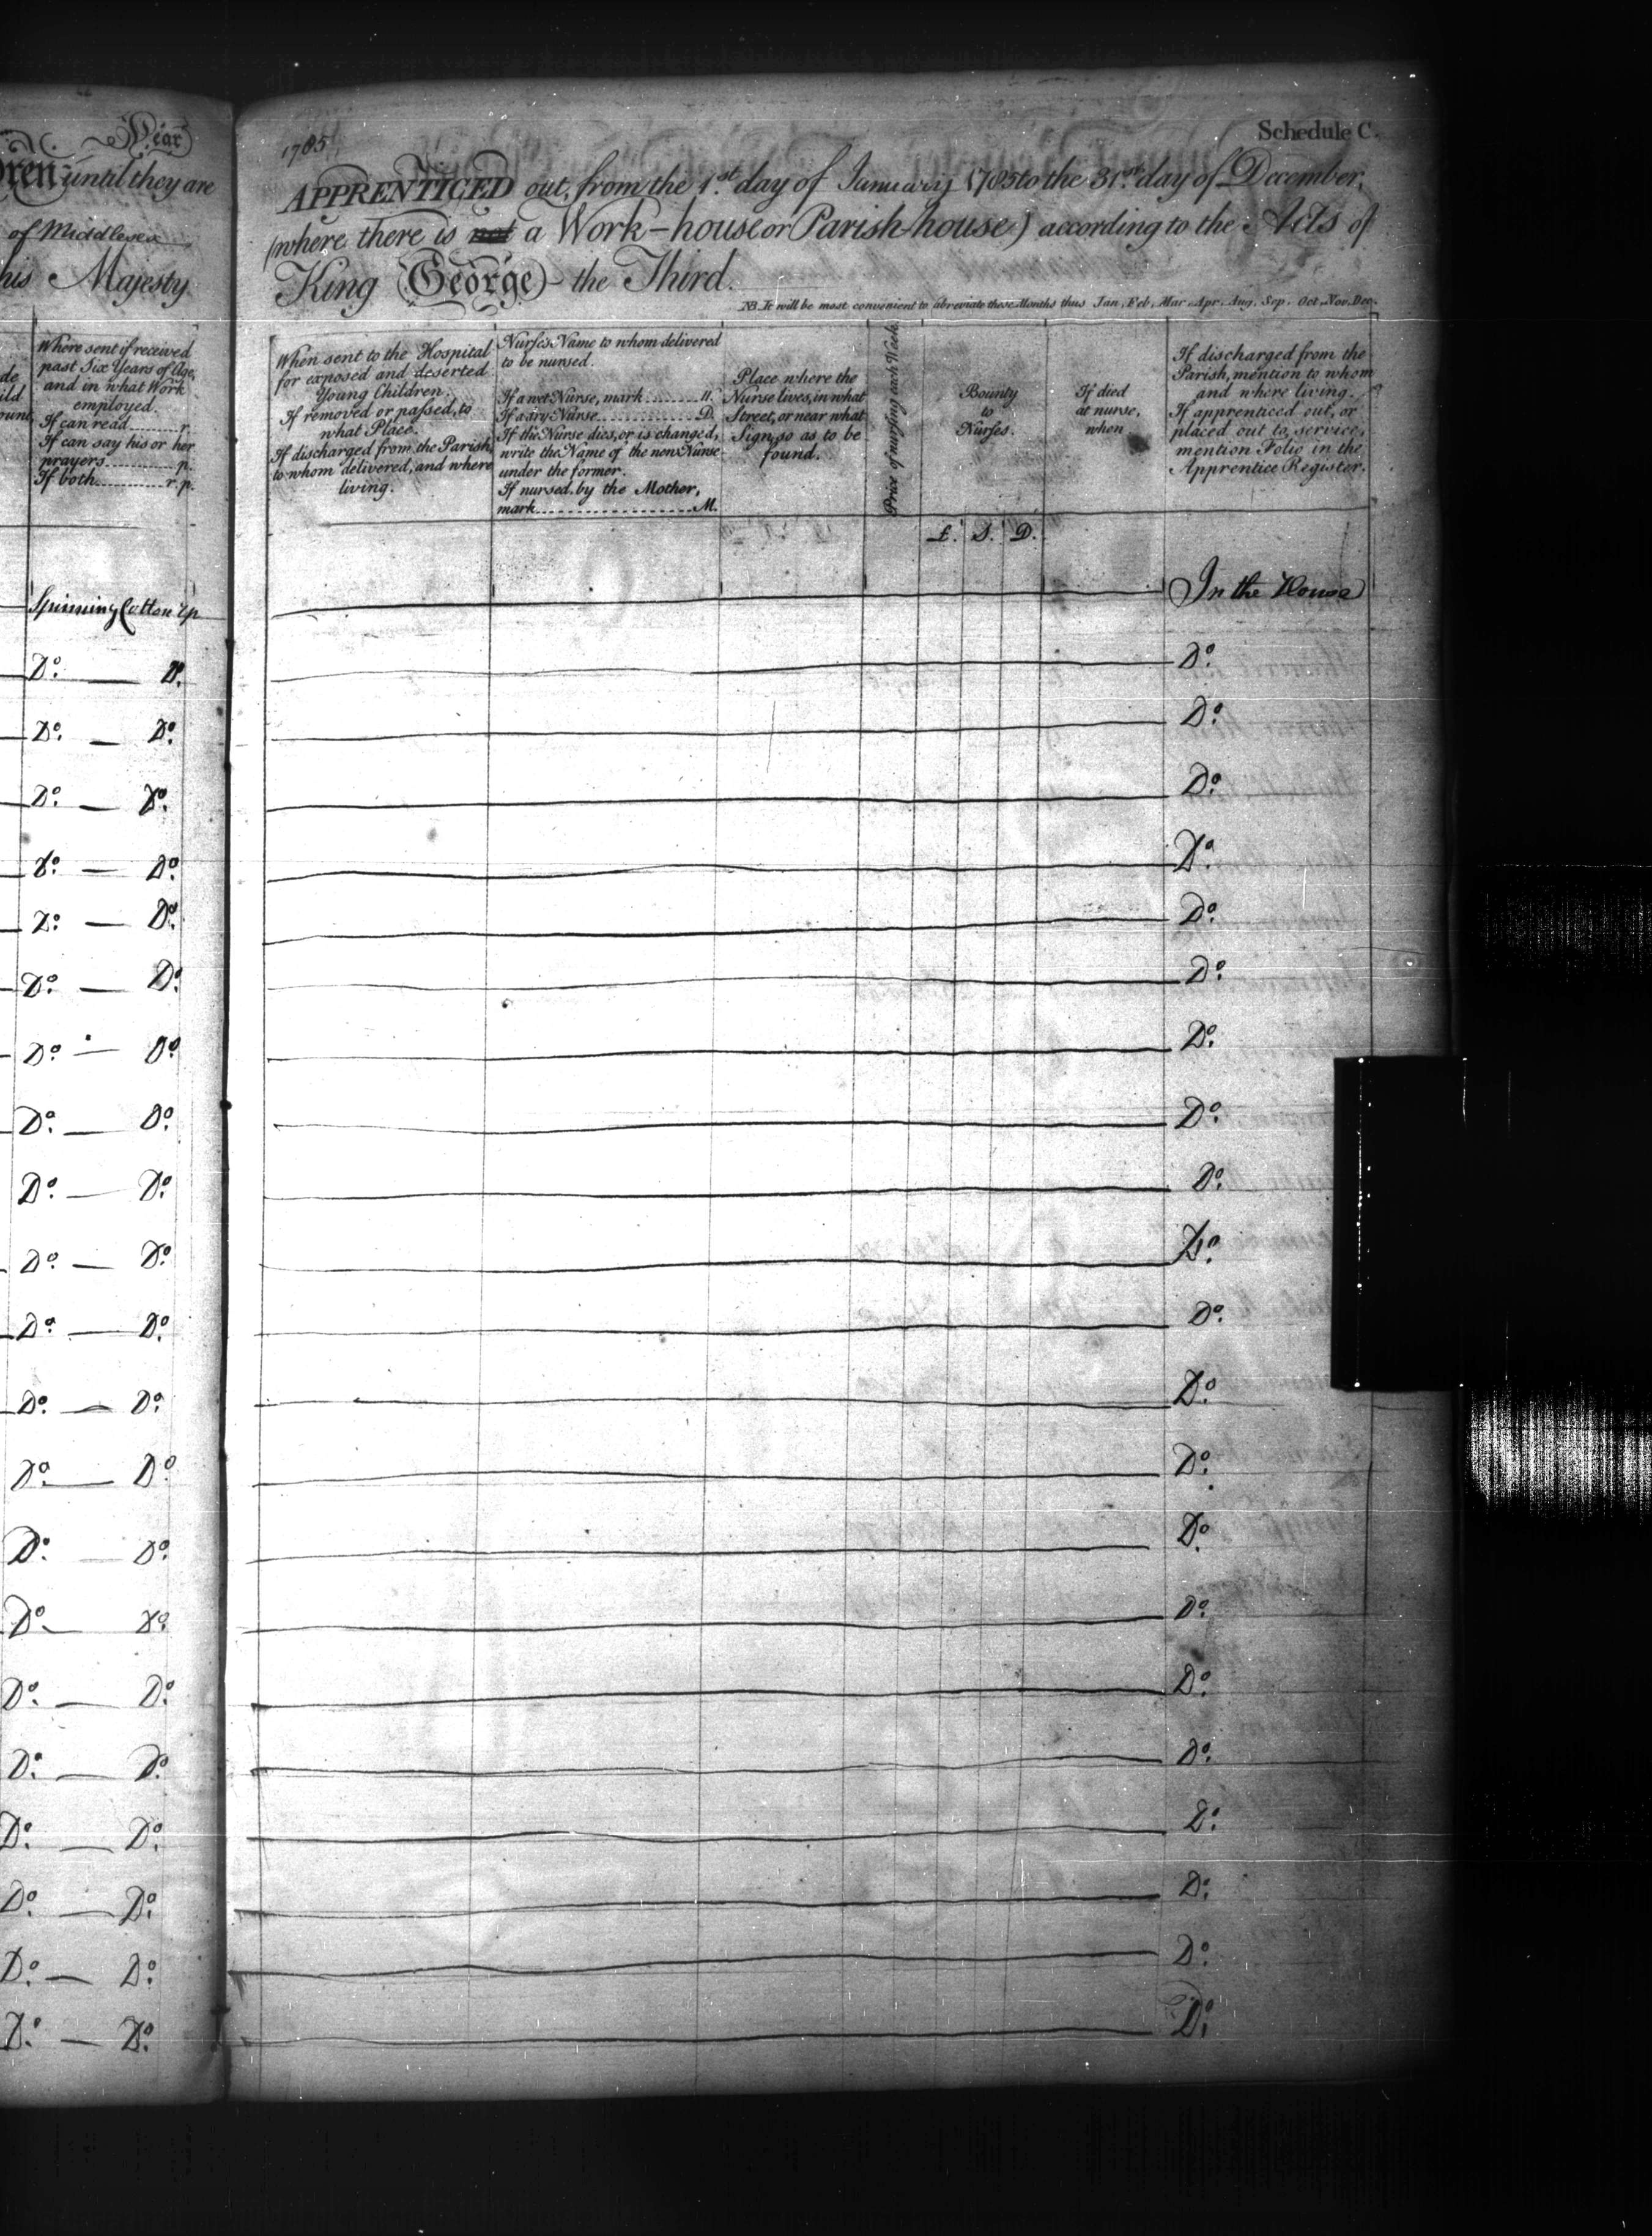 Year
ren until they are
of Middlesex
his Majesty
Where sent if received
past Six Years of Age,
and in what Work
employed.
If can read........r.
If can say his or her
prayers..........p.
If both..........r.p.
Spinning Cotton rp
Do. — Do.
Do. — Do.
Do. — Do.
Do. — Do.
Do. — Do.
Do. — Do.
Do. — Do.
Do. — Do.
Do. — Do.
Do. — Do.
Do. — Do.
Do. — Do.
Do. — Do.
Do. — Do.
Do. — Do.
Do. — Do.
Do. — Do.
Do. — Do.
Do. — Do.
Do. — Do.
Do. — Do.
1785
Schedule C.
APPRENTICED out, from the 1st. day of January 1785 to the 31st. day of December,
(where there is not a Work-house or Parish-house) according to the Acts of
King George the Third.
NB. It will be most convenient to abreviate these Months thus Jan, Feb, Mar, Apr, Aug, Sep, Oct, Nov, Dec.
When sent to the Hospital
for exposed and deserted
Young Children.
If removed or passed, to
what Place.
If discharged from the Parish,
to whom delivered, and where
living.
Nurse's Name to whom delivered
to be nursed.
If a wet Nurse, mark........n.
If a dry Nurse..............D.
If the Nurse dies, or is changed,
write the Name of the new Nurse
under the former.
If nursed by the Mother,
mark........................M.
Place where the
Nurse lives, in what
Street, or near what
Sign, so as to be
found.
Price of nursing each Week.
Bounty
to
Nurses.
£. S. D.
If died
at nurse,
when
If discharged from the
Parish, mention to whom
and where living.
If apprenticed out, or
placed out to service,
mention Folio in the
Apprentice Register.
In the House
Do.
Do.
Do.
Do.
Do.
Do.
Do.
Do.
Do.
Do.
Do.
Do.
Do.
Do.
Do.
Do.
Do.
Do.
Do.
Do.
Do.